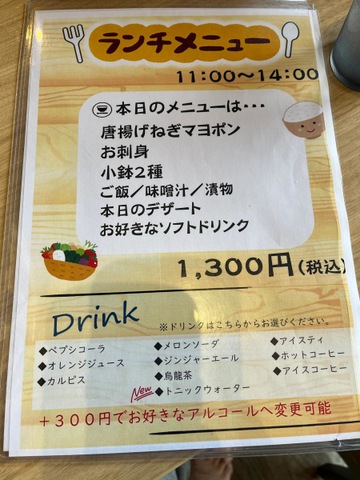 ランチメニュー
11:00～14:00
本日のメニューは・・・
唐揚げねぎマヨポン
お刺身
小鉢２種
ご飯／味噌汁／漬物
本日のデザート
お好きなソフトドリンク
1,300円(税込)
Drink
※ドリンクはこちらからお選びください。
◆ペプシコーラ
◆オレンジジュース
◆カルピス
◆メロンソーダ
◆ジンジャーエール
◆烏龍茶
New ◆トニックウォーター
◆アイスティ
◆ホットコーヒー
◆アイスコーヒー
＋３００円でお好きなアルコールへ変更可能